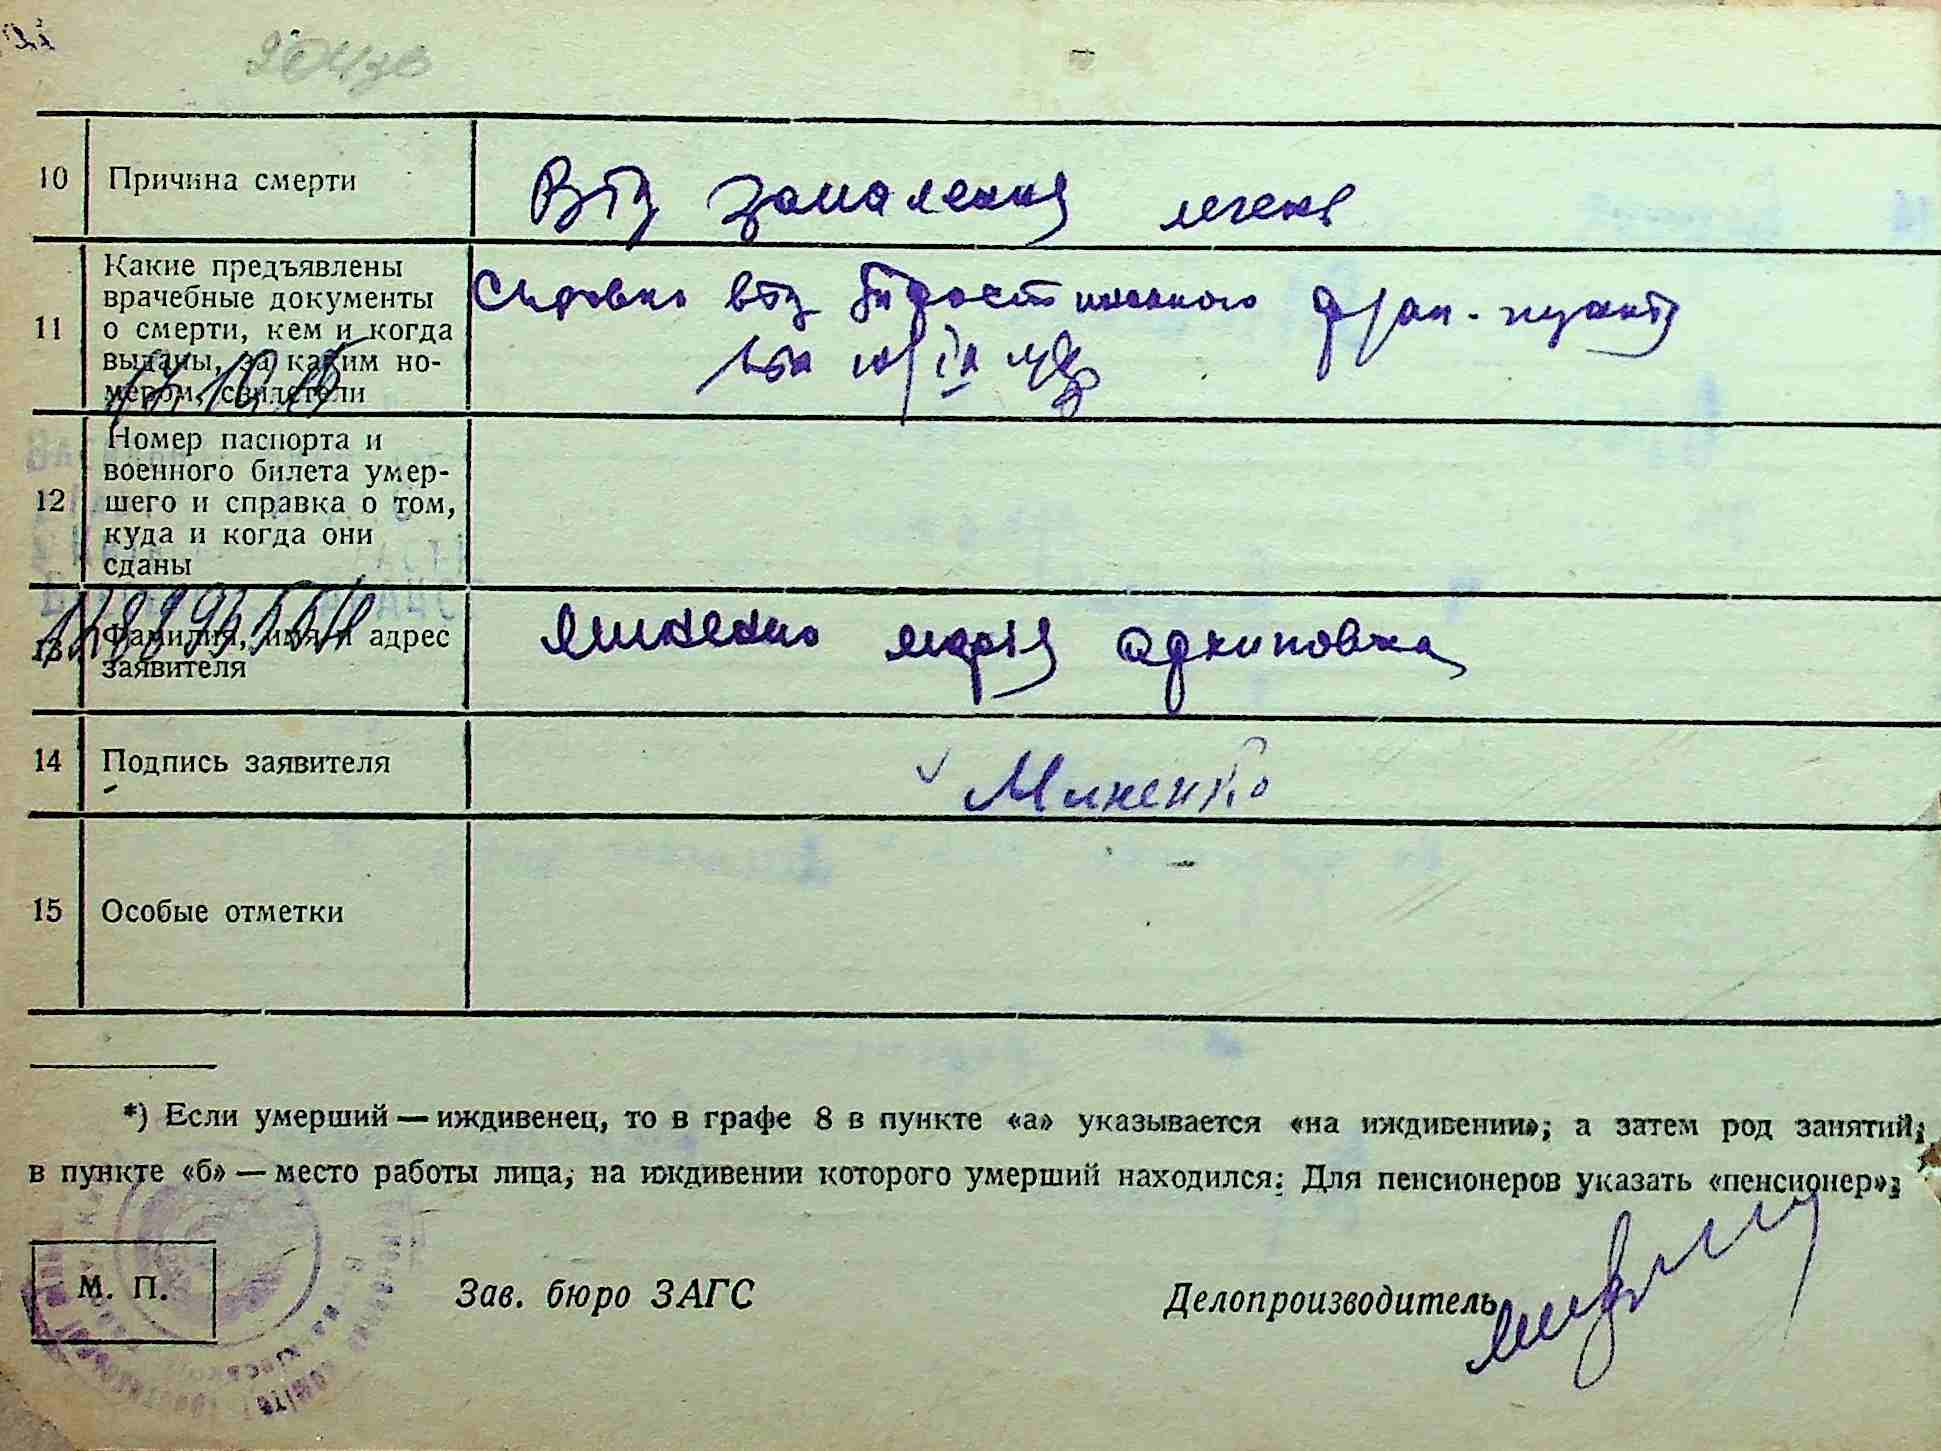 10 Причина смерти Від запалення легень
11 Какие предъявлены
врачебные документы
о смерти, кем и когда
выданы, за каким но-
мером, свидетели
Справка від
пункту
12 Номер паспорта и
военного билета умер-
шего и справка о том,
куда и когда они
сданы
13 Фамилия, имя и адрес
заявителя
Миненко Марія Архиповна
14 Подпись заявителя Миненко
15 Особые отметки
*) Если умерший — иждивенец, то в графе 8 в пункте «а» указывается «на иждивении»; а затем род занятий;
в пункте «б» — место работы лица, на иждивении которого умерший находился: Для пенсионеров указать «пенсионер»;
М. П. Зав. бюро ЗАГС Делопроизводитель